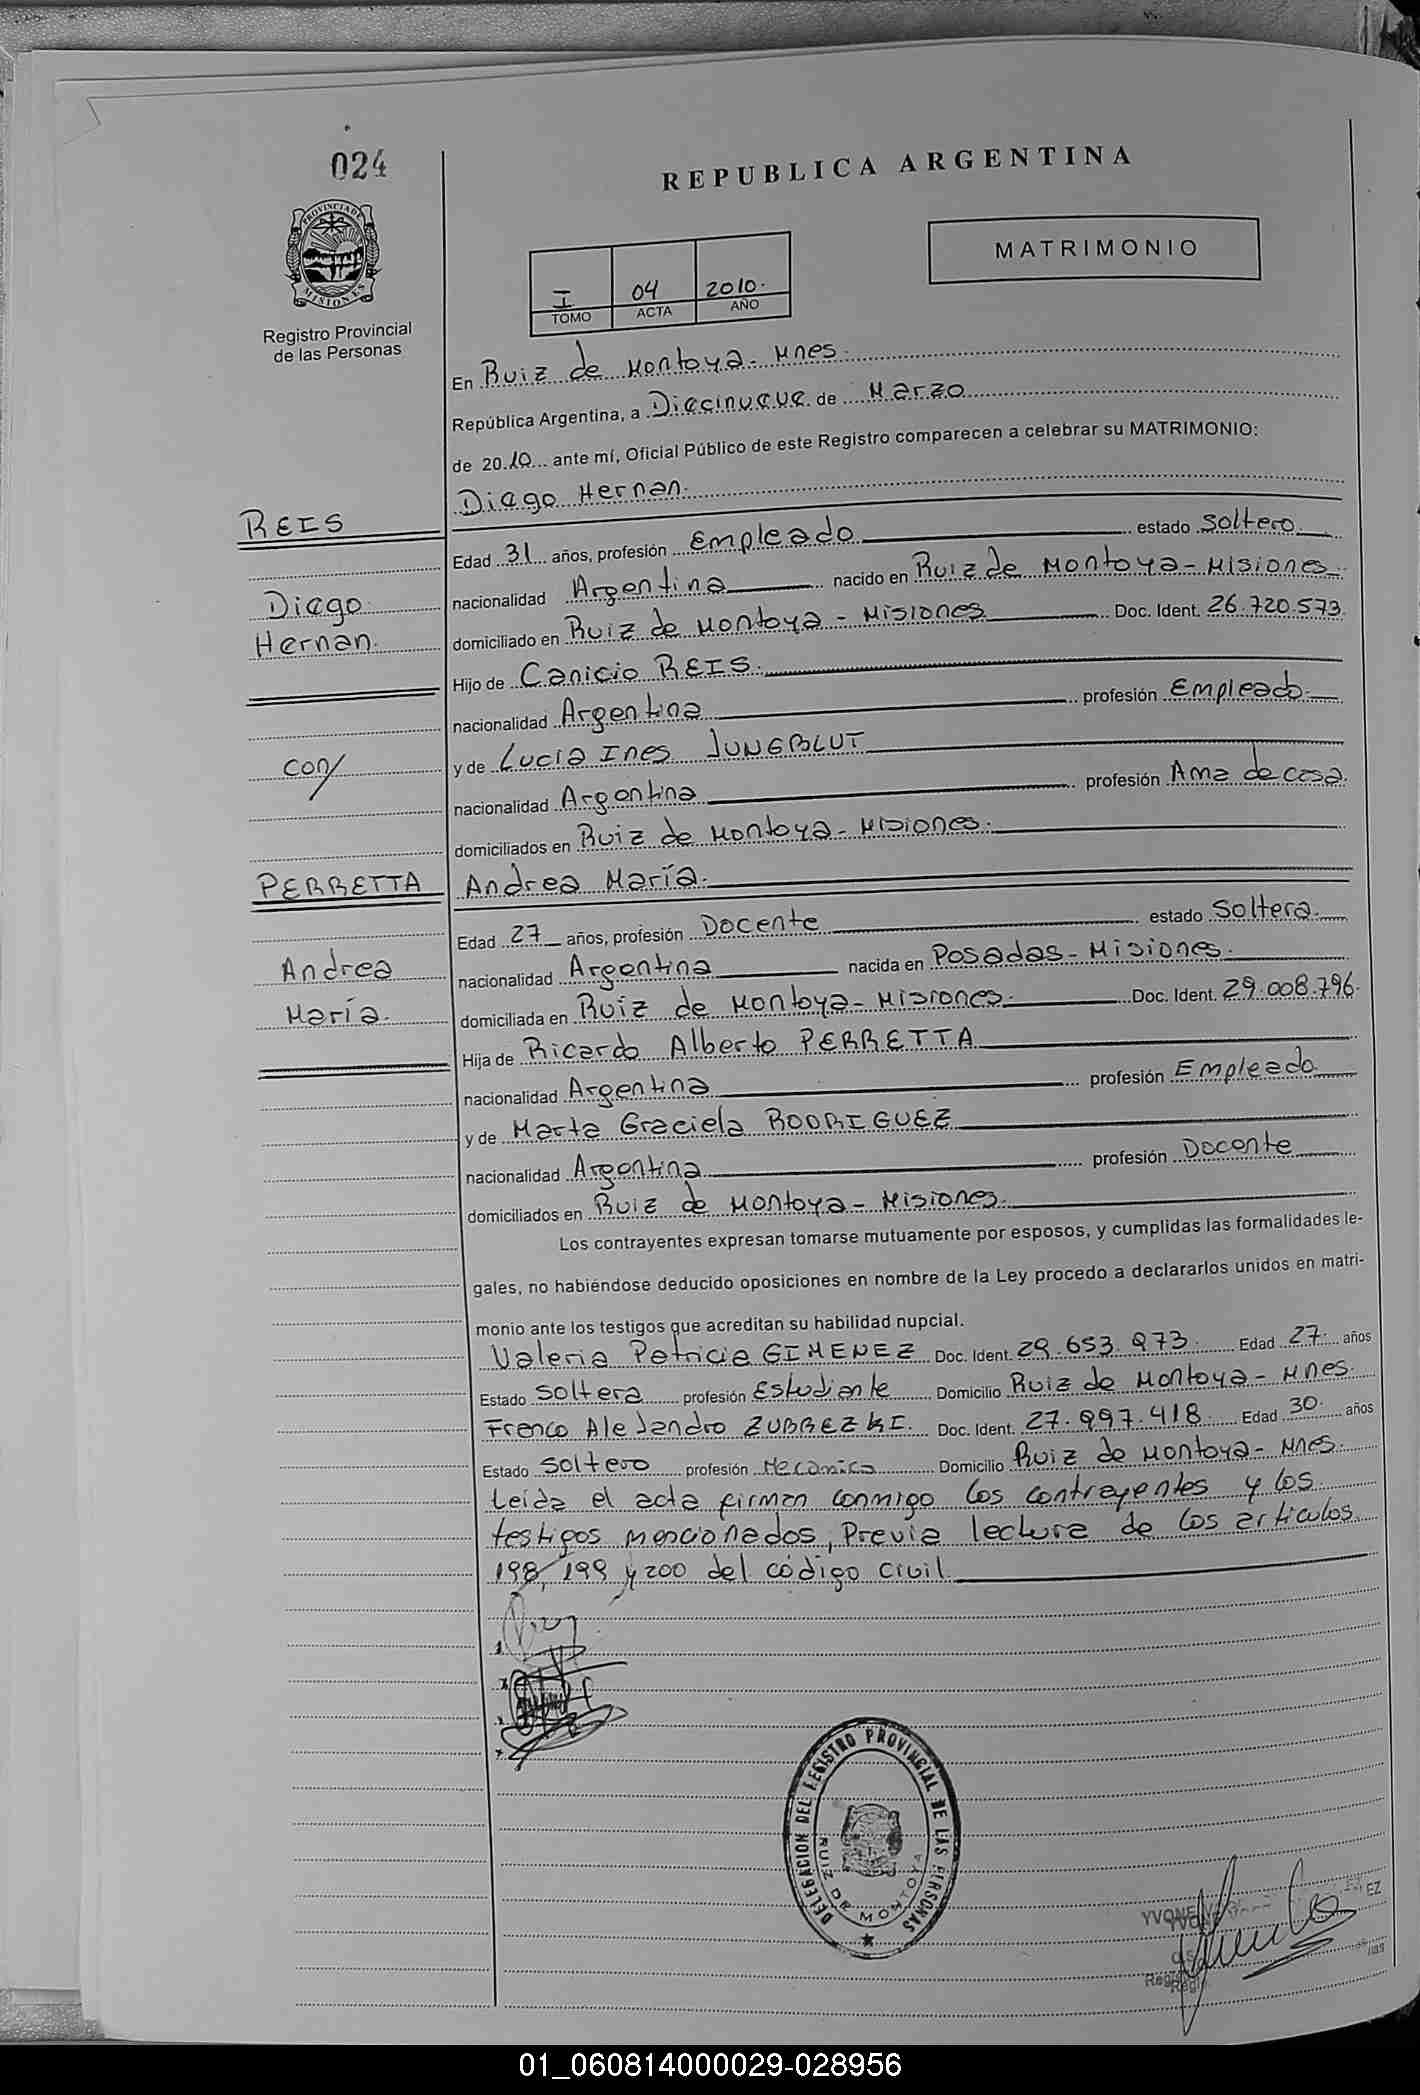 024
REPUBLICA ARGENTINA
PROVINCIA DE MISIONES
Registro Provincial
de las Personas
MATRIMONIO
I 04 2010.
TOMO ACTA AÑO
En Ruiz de Montoya - Mnes.
República Argentina, a Diecinueve de Marzo
de 2010 ante mí, Oficial Público de este Registro comparecen a celebrar su MATRIMONIO:
REIS Diego Hernan.
Edad 31 años, profesión Empleado estado soltero.
Diego nacionalidad Argentina nacido en Ruiz de Montoya - Misiones.
Hernan. domiciliado en Ruiz de Montoya - Misiones Doc. Ident. 26.720.573.
Hijo de Canicio REIS.
nacionalidad Argentina profesión Empleado.
con/ y de Lucia Ines JUNGBLUT
nacionalidad Argentina profesión Ama de casa.
domiciliados en Ruiz de Montoya - Misiones.
PERRETTA Andrea María.
Edad 27 años, profesión Docente estado Soltera.
Andrea nacionalidad Argentina nacida en Posadas - Misiones.
María. domiciliada en Ruiz de Montoya - Misiones. Doc. Ident. 29.008.796.
Hija de Ricardo Alberto PERRETTA
nacionalidad Argentina profesión Empleado
y de Marta Graciela RODRIGUEZ
nacionalidad Argentina profesión Docente
domiciliados en Ruiz de Montoya - Misiones.
Los contrayentes expresan tomarse mutuamente por esposos, y cumplidas las formalidades le-
gales, no habiéndose deducido oposiciones en nombre de la Ley procedo a declararlos unidos en matri-
monio ante los testigos que acreditan su habilidad nupcial.
Valeria Patricia GIMENEZ Doc. Ident. 29.653.973. Edad 27. años
Estado soltera profesión Estudiante Domicilio Ruiz de Montoya - Mnes.
Franco Alejandro ZUBREZKI. Doc. Ident. 27.997.418 Edad 30. años
Estado soltero profesión Mecanico Domicilio Ruiz de Montoya - Mnes.
Leida el acta firman conmigo los contrayentes y los
testigos mencionados, Previa lectura de los articulos
198, 199 y 200 del código civil.
DELEGACION DEL REGISTRO PROVINCIAL DE LAS PERSONAS
RUIZ DE MONTOYA
YVONE
01_060814000029-028956